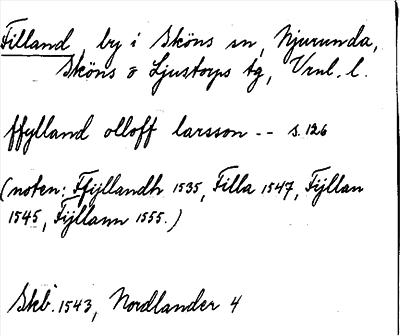 Filland, by i Sköns sn, Njurunda,
Sköns o Ljustorps tg, Vrnl. l.
ffylland olloff larsson -- s. 126
(noten: Ffijllandh 1535, Filla 1547, Fijllan
1545, Fijllann 1555.)
Skb. 1543, Nordlander 4